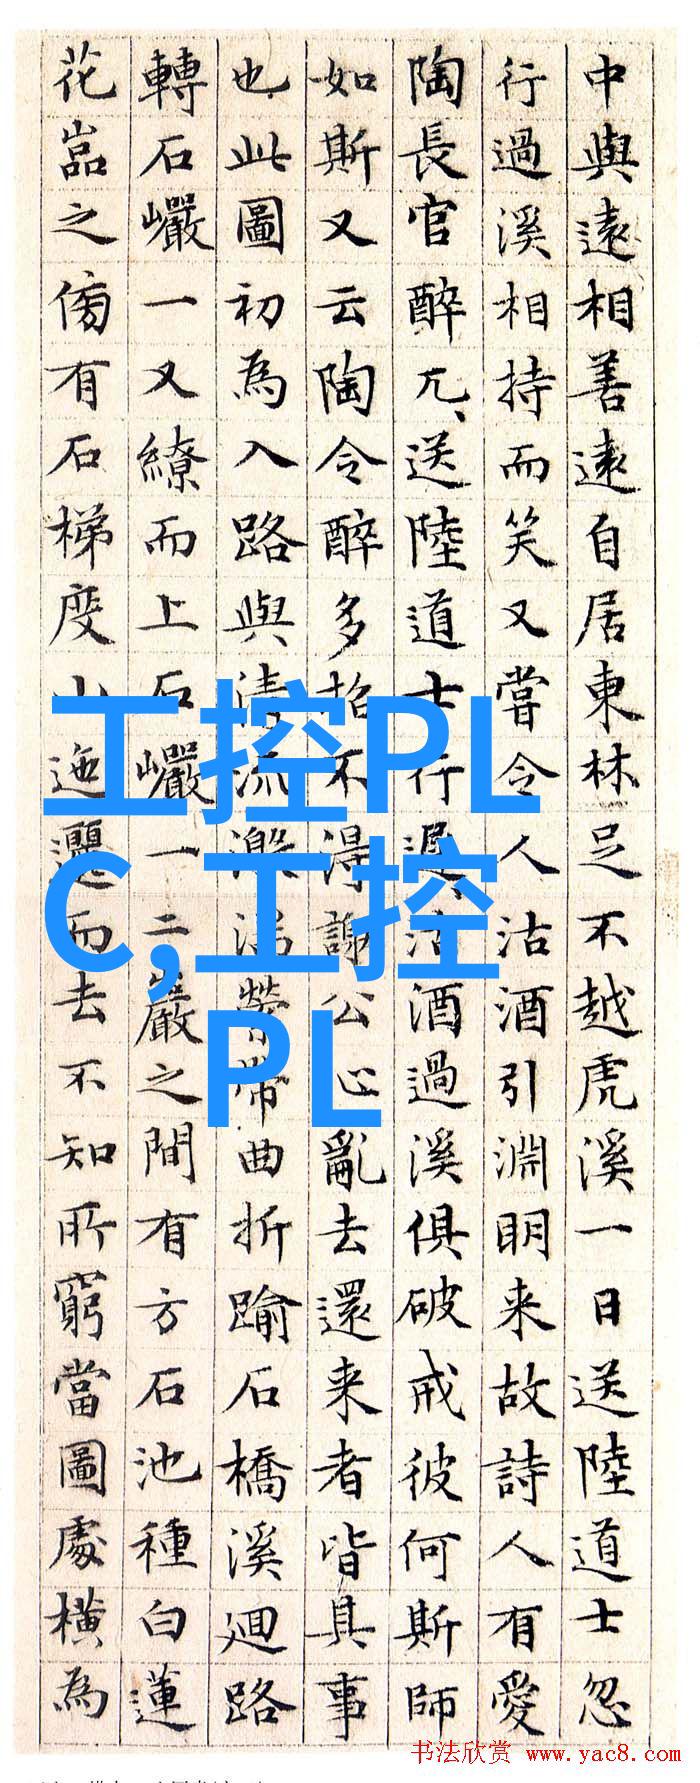 中與遠相善遠自居東林足不越虎溪一日送陸道士忽
行過溪相持而笑又嘗令人沽酒引淵明来故詩人有愛
陶長官醉兀、送陸道士行遲、沽酒過溪俱破戒彼何斯師
如斯又云陶令醉多招不得謝公心亂去還来者皆具事
也此圖初為入路與清流激湍縈帶曲折踰石橋溪迴路
轉石巖一又繚而上石巖一二巖之間有方石池種白蓮
花嵓之傍有石梯度山迤邐而去不知所窮當圖處橫為
工控PL
C,工控
PL
书法欣赏 www.yac8.com